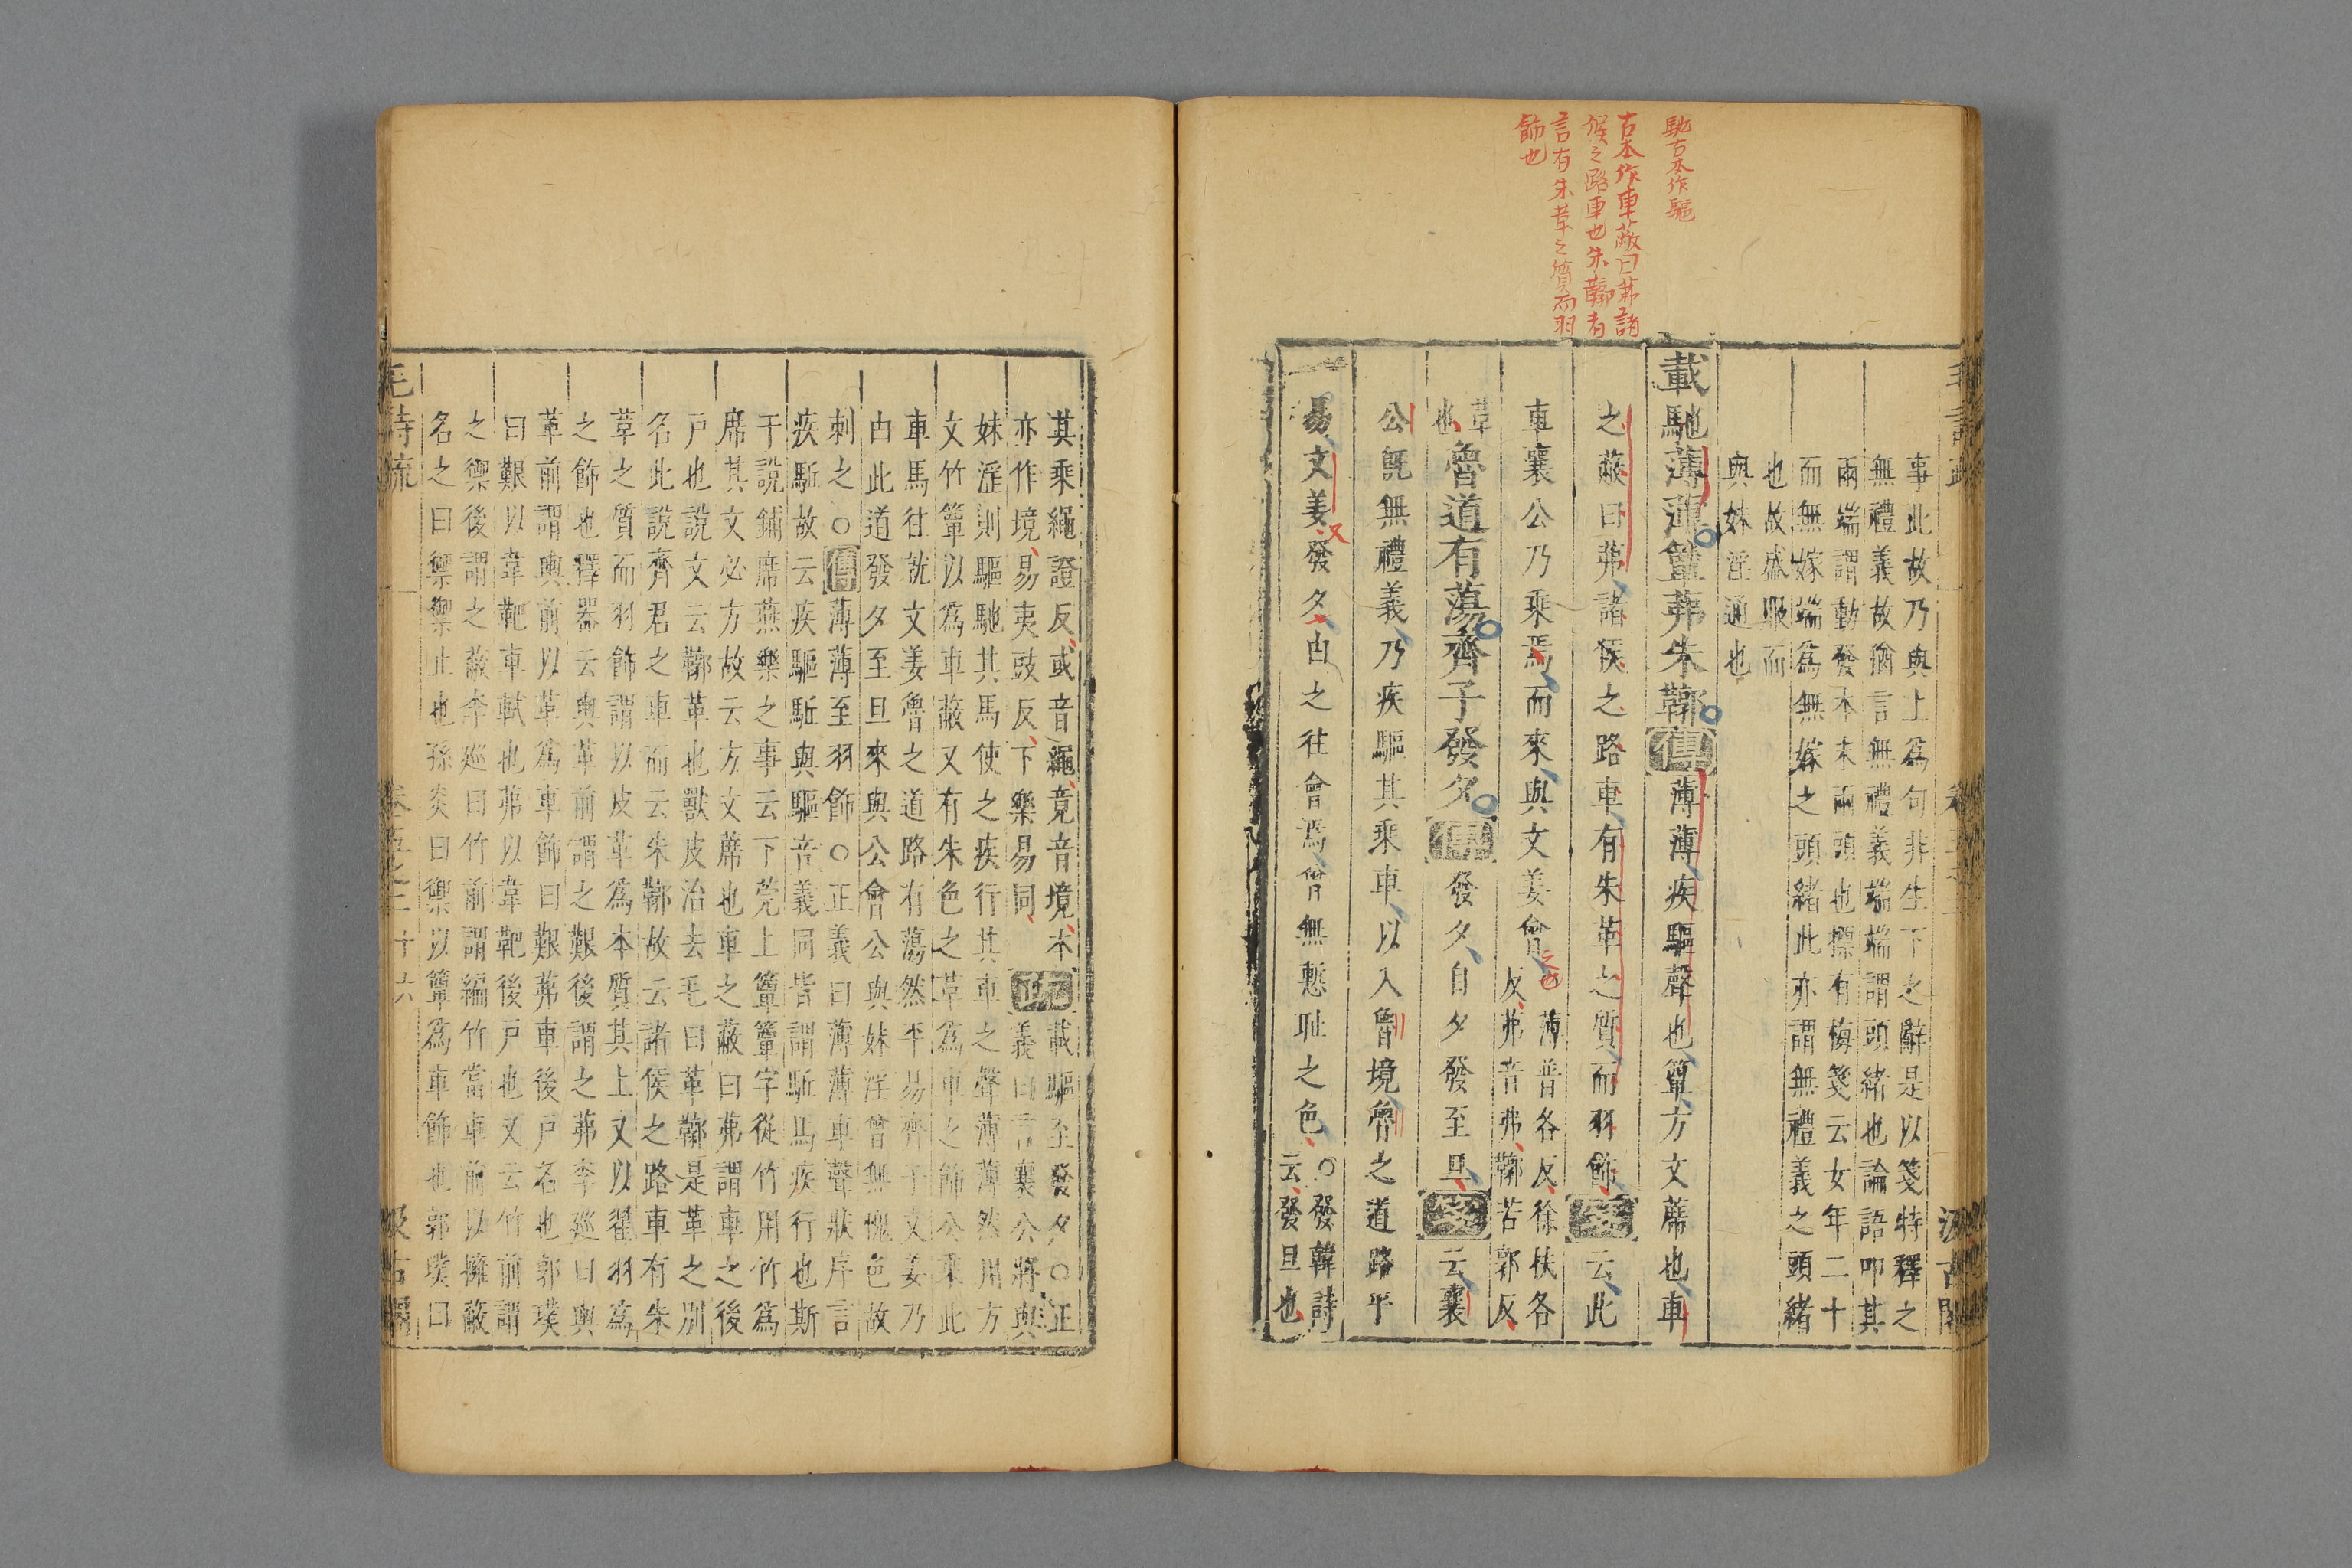 馳古本作驅
古本作車蔽曰茀諸
侯之路車也朱鞹者
言有朱革之質而羽
飾也
事此故乃與上爲句非生下之辭是以箋特釋之
無禮義故猶言無禮義端端謂頭緒也論語叩其
兩端謂動發本末兩頭也摽有梅箋云女年二十
而無嫁端爲無嫁之頭緒此亦謂無禮義之頭緒
也故盛服而
與妹淫通也
載馳薄薄簟茀朱鞹傳薄薄疾驅聲也簟方文蓆也車
之蔽曰茀諸侯之路車有朱革之質而羽飾箋云此
車襄公乃乘焉而來與文姜會之也薄普各反徐扶各
反茀音弗鞹苦郭反
革
也魯道有蕩齊子發夕傳發夕自夕發至旦箋云襄
公旣無禮義乃疾驅其乘車以入魯境魯之道路平
易文姜發夕由之往會焉曾無慙耻之色○發韓詩
云發旦也
其乘繩證反或音繩竟音境本
亦作境易夷豉反下樂易同疏載驅至發夕○正
義曰言襄公將與
妹淫則驅馳其馬使之疾行其車之聲薄薄然用方
文竹簟以爲車蔽又有朱色之革爲車之飾公乘此
車馬往就文姜魯之道路有蕩然平易齊子文姜乃
由此道發夕至旦來與公會公與妹淫曾無愧色故
刺之○傳薄薄至羽飾○正義曰薄薄車聲狀序言
疾驅故云疾驅驅與驅音義同皆謂驅馬疾行也斯
干說鋪席燕樂之事云下莞上簟簟字從竹用竹爲
席其文必方故云方文蓆也車之蔽曰茀謂車之後
戸也說文云鞹革也獸皮治去毛曰革鞹是革之別
名此說齊君之車而云朱鞹故云諸侯之路車有朱
革之質而羽飾謂以皮革爲本質其上又以翟羽爲
之飾也釋器云輿革前謂之艱後謂之茀李巡曰輿
革前謂輿前以革爲車飾曰艱茀車後戸名也郭璞
曰艱以韋靶車軾也茀以韋靶後戸也又云竹前謂
之禦後謂之蔽李巡曰竹前謂編竹當車前以擁蔽
名之曰禦禦止也孫炎曰禦以簟爲車飾也郭璞曰
毛詩疏 卷五之二 十六 汲古閣